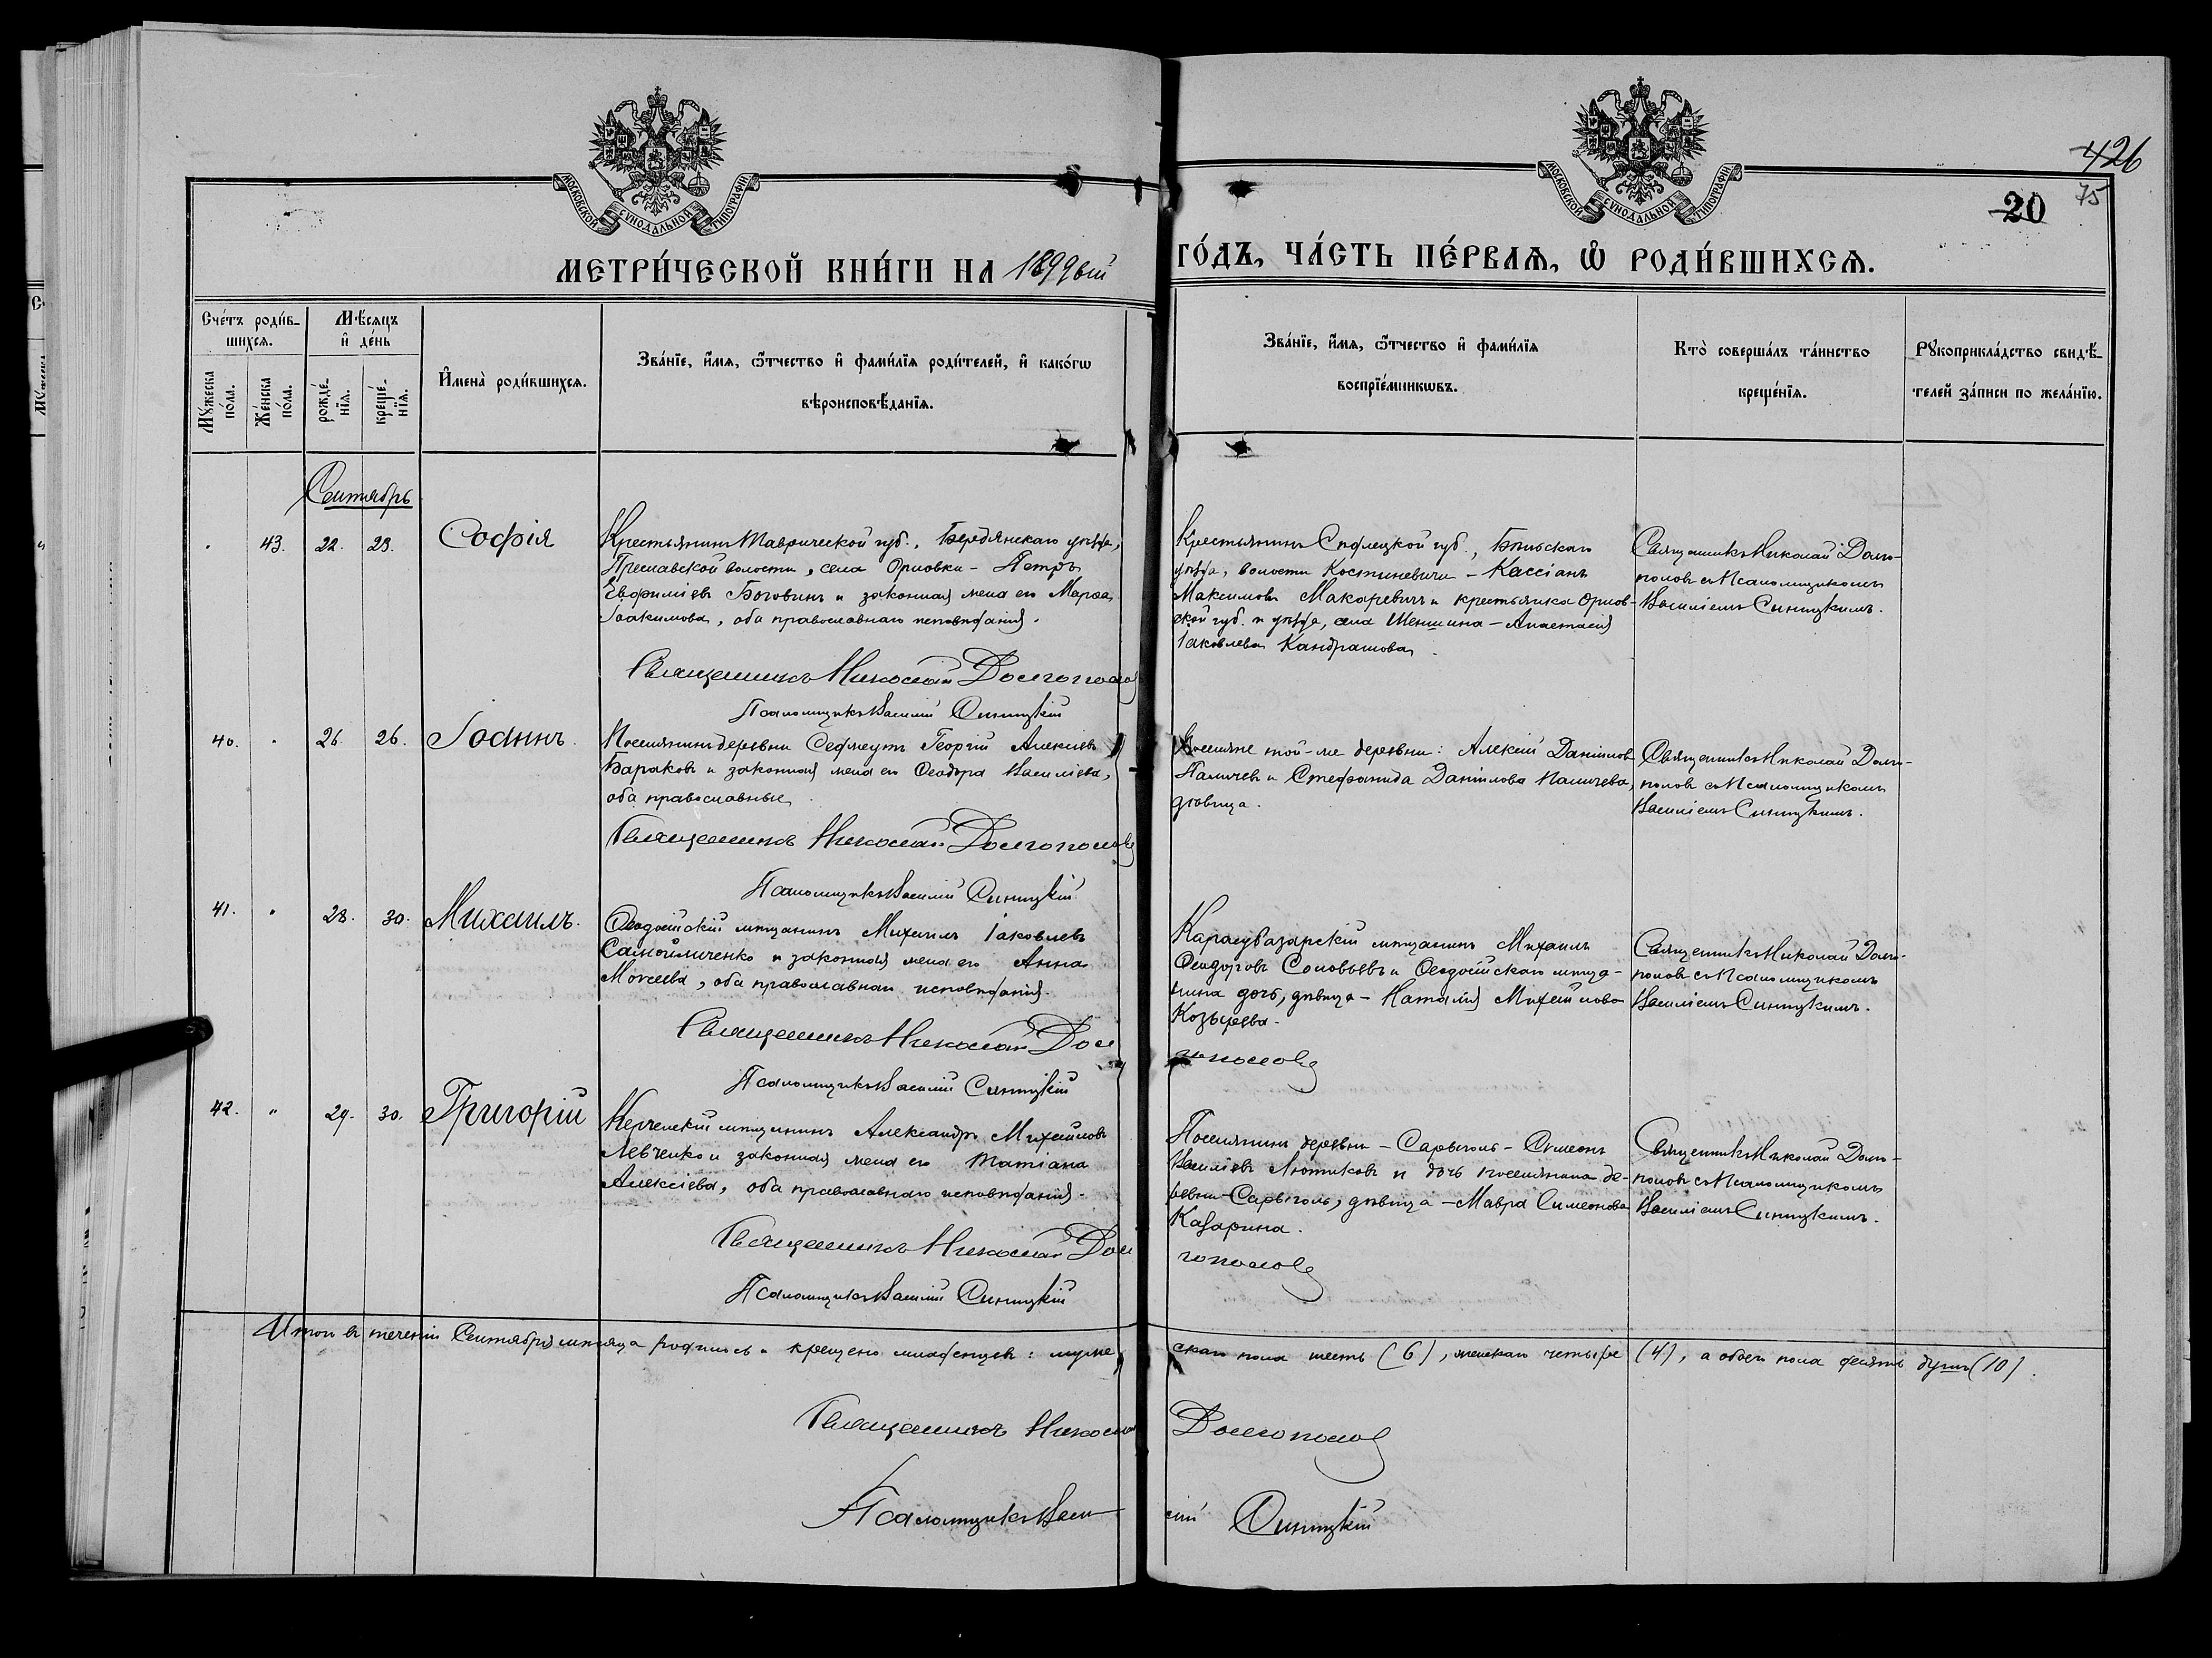 МОСКОВСКОЙ СѴНОДАЛЬНОЙ ТИПОГРАФІИ
МОСКОВСКОЙ СѴНОДАЛЬНОЙ ТИПОГРАФІИ
426
75
20
МЕТРИ́ЧЕСКОЙ КНИ́ГИ НА 1899ый ГО́ДЪ, ЧА́СТЬ ПЕ́РВАѦ, Ѡ҆ РОДИ́ВШИХСѦ.
Сче́тъ роди́в-
шихсѧ.
Мѣ́сѧцъ
и҆ де́нь
Мꙋ́жеска
по́ла.
Же́нска
по́ла.
рожде́-
нїѧ.
креще́-
нїѧ.
И҆мена̀ роди́вшихсѧ.
Зва́нїе, и҆́мѧ, ѻ҆́тчество и҆ фами́лїѧ роди́телей, и҆ како́гѡ
вѣроисповѣ́данїѧ.
Зва́нїе, и҆́мѧ, ѻ҆́тчество и҆ фами́лїѧ
воспрїе́мникѡвъ.
Кто̀ соверша́лъ та́инство
креще́нїѧ.
Рꙋкоприкла́дство свидѣ́-
телей за́писи по жела́нїю.
Сентябрь
43. 22. 23. Софія
Крестьянинъ Таврической губ., Бердянскаго уѣзда,
Преславской волости, села Орловки - Петръ
Евфиміевъ Боговинъ и законная жена его Марѳа
Іоакимова, оба православнаго исповѣданія.
Священникъ Николай Долгополовъ
Псаломщикъ Василій Синицкій
Крестьянинъ губ., Бѣльскаго
уѣзда, волости Костиневичи - Кассіанъ
Максимовъ Макаревичъ и крестьянка Орлов-
ской губ. и уѣзда, села Шеншина - Анастасія
Іаковлева Кандрашова.
Священникъ Николай Долго-
половъ съ Псаломщикомъ
Василіемъ Синицкимъ.
40. " 26. 26. Іоаннъ.
Поселянинъ деревни Георгій Алексіевъ
Бараковъ и законная жена его Ѳеодора Василіева,
оба православные.
Священникъ Николай Долгополовъ
Псаломщикъ Василій Синицкій
Поселяне той-же деревни: Алексій Даніиловъ
Паличевъ и Стефанида Даніилова Паличева,
дѣвица.
Священникъ Николай Долго-
половъ съ Псаломщикомъ
Василіемъ Синицкимъ.
41. " 28. 30. Михаилъ.
Ѳеодосійскій мѣщанинъ Михаилъ Іаковлевъ
Самойличенко и законная жена его Анна
Моисеева, оба православнаго исповѣданія.
Священникъ Николай Долгополовъ
Псаломщикъ Василій Синицкій
Карасубазарскій мѣщанинъ Михаилъ
Ѳеодоровъ Соловьевъ и Ѳеодосійскаго мѣща-
нина дочь, дѣвица - Наталія Михайлова
Козырева.
Священникъ Николай Долго-
половъ съ Псаломщикомъ
Василіемъ Синицкимъ.
42. " 29. 30. Григорій
Керченскій мѣщанинъ Александръ Михайловъ
Левченко и законная жена его Татіана
Алексіева, оба православнаго исповѣданія.
Священникъ Николай Долгополовъ
Псаломщикъ Василій Синицкій
Поселянинъ деревни - Сарыголь - Сѵмеонъ
Василіевъ Лютиковъ и дочь поселянина де-
ревни Сарыголь, дѣвица - Мавра Симеонова
Казарина.
Священникъ Николай Долго-
половъ съ Псаломщикомъ
Василіемъ Синицкимъ.
Итого въ теченіи Сентября мѣсяца родилось и крещено младенцевъ: мужескаго пола шесть (6), женскаго четыре (4), а обоего пола десять душъ (10).
Священникъ Николай Долгополовъ
Псаломщикъ Василій Синицкій